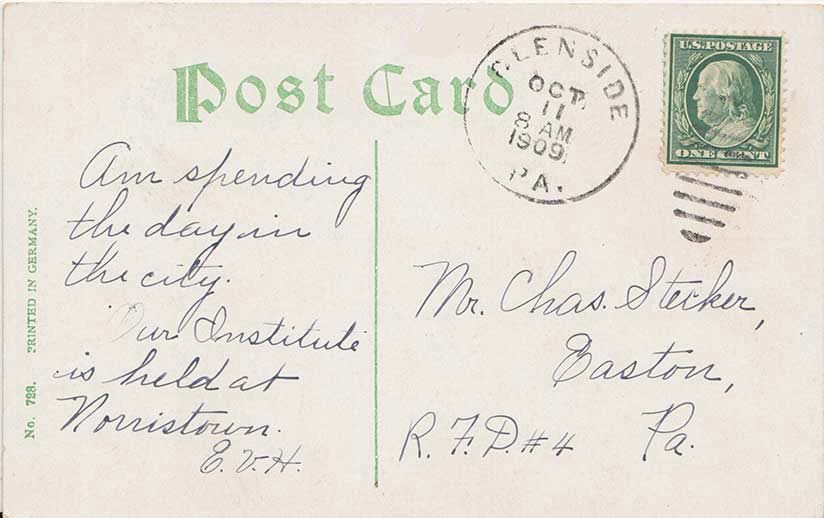 Post Card
GLENSIDE
OCT.
11
8 AM
1909
PA.
U.S. POSTAGE
ONE CENT
Am spending
the day in
the city.
Our Institute
is held at
Norristown.
E.V.H.
Mr. Chas. Stecker,
Easton,
R.F.D.#4 Pa.
No. 728. PRINTED IN GERMANY.